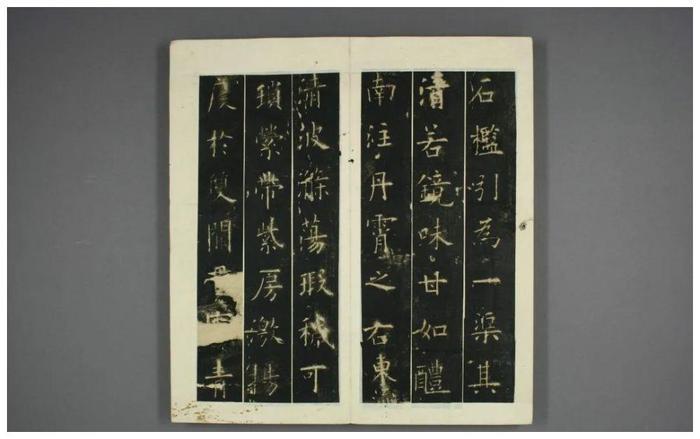 石檻引為一渠其
清若鏡味甘如醴
南注丹霄之右東
清波滌蕩瑕穢可
瑣縈帶紫房激揚
度於雙闕青